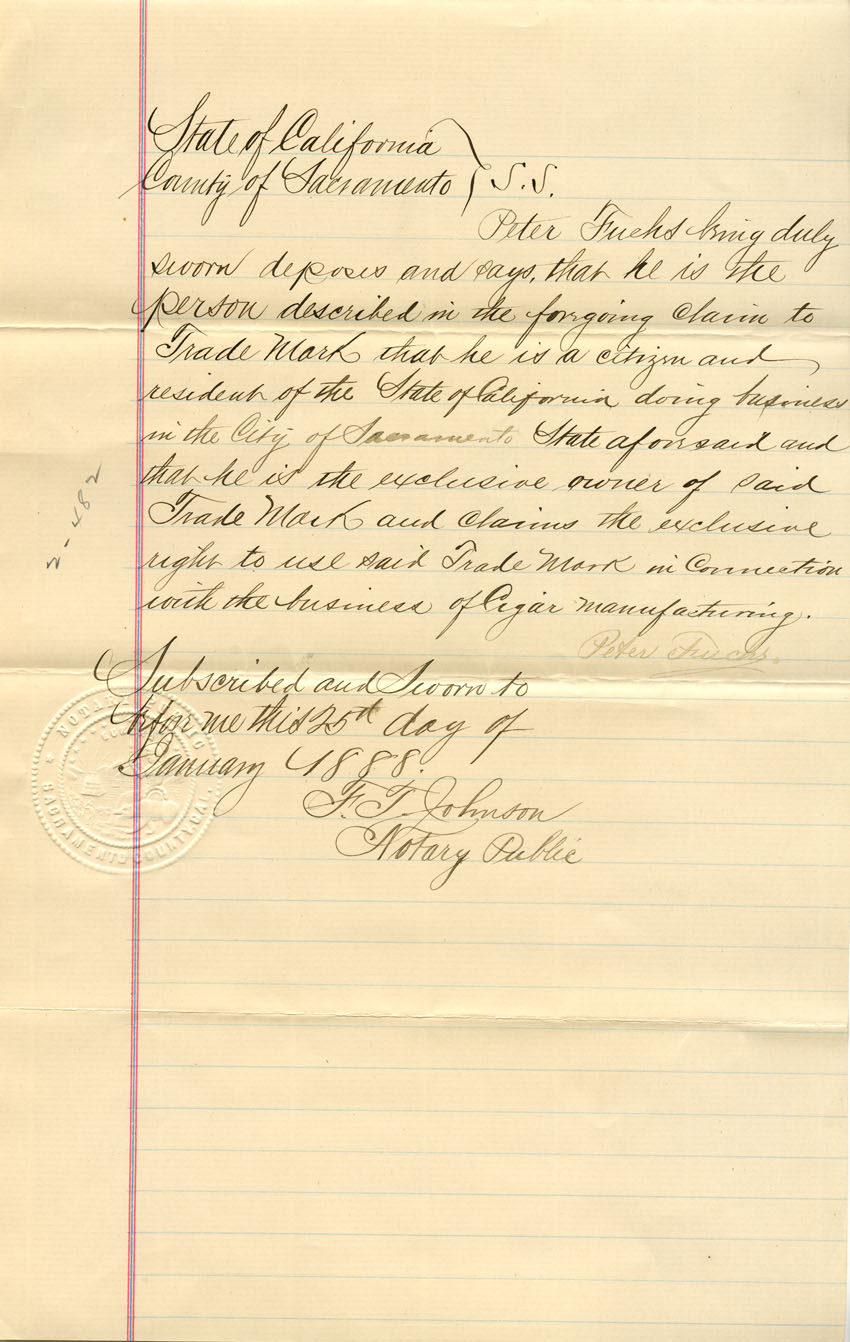 State of California
County of Sacramento } S.S.
Peter Fuchs being duly
sworn deposes and says, that he is the
person described in the forgoing claim to
Trade Mark that he is a citizen and
resident of the State of California doing business
in the City of Sacramento State aforesaid and
that he is the exclusive owner of said
Trade Mark and claims the exclusive
right to use said Trade Mark in Connection
with the business of Cigar manufacturing.
Peter Fuchs.
Subscribed and Sworn to
before me this 25th day of
January 1888.
F. T. Johnson
Notary Public
2-482
NOTARY PUBLIC
SACRAMENTO COUNTY CAL.